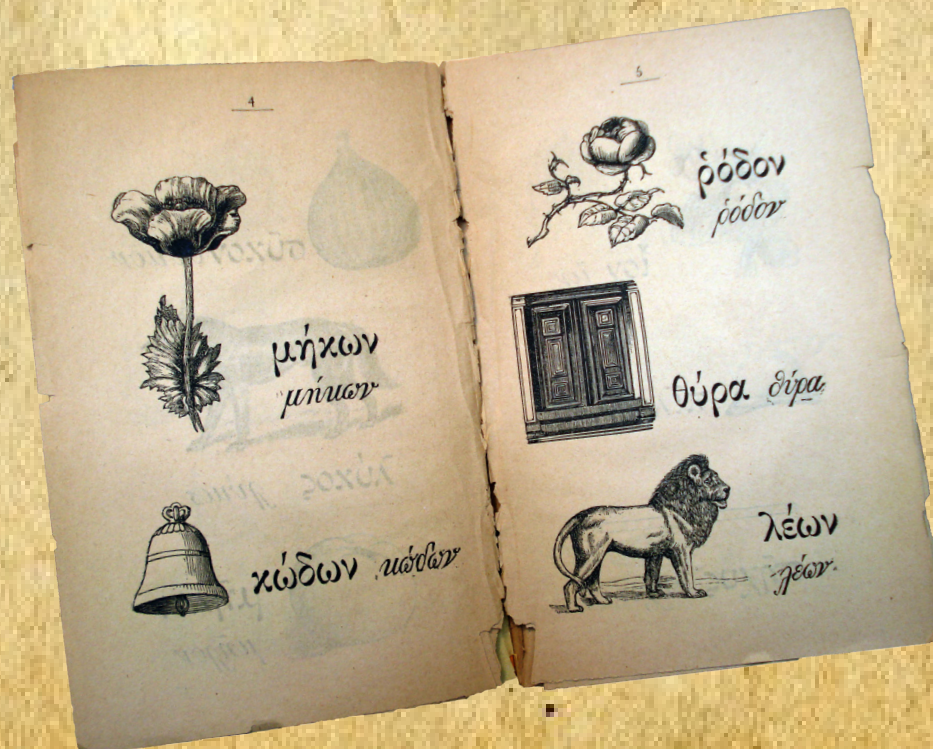 4
μήκων
μήκων
κώδων κώδων
5
ῥόδον
ῥόδον
θύρα θύρα
λέων
λέων